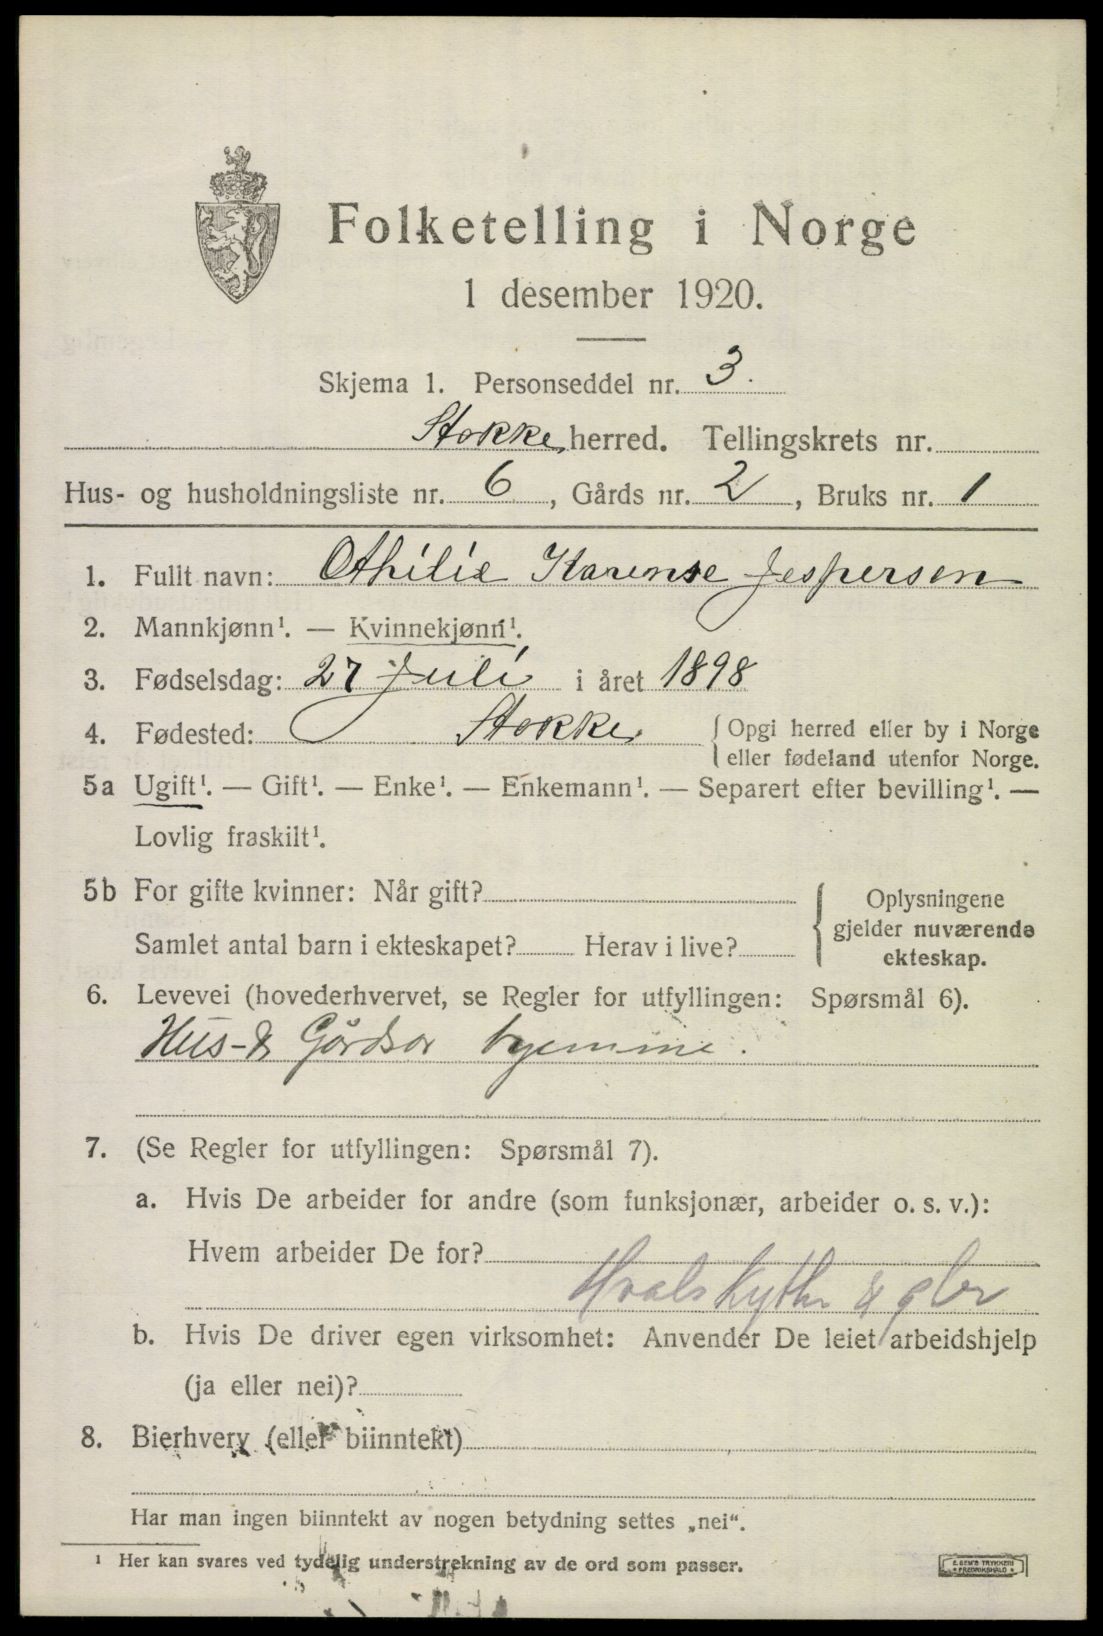 Folketelling i Norge
1 desember 1920.
Skjema 1. Personseddel nr. 3.
Stokke herred. Tellingskrets nr.
Hus- og husholdningsliste nr. 6, Gårds nr. 2, Bruks nr. 1
1. Fullt navn: Othilie Karense Jespersen
2. Mannkjønn¹. — Kvinnekjønn¹.
3. Fødselsdag: 27 Juli i året 1898
4. Fødested: Stokke. { Opgi herred eller by i Norge
eller fødeland utenfor Norge.
5a Ugift¹. — Gift¹. — Enke¹. — Enkemann¹. — Separert efter bevilling¹. —
Lovlig fraskilt¹.
5b For gifte kvinner: Når gift?
Samlet antal barn i ekteskapet? Herav i live?
{ Oplysningene
gjelder nuværende
ekteskap.
6. Levevei (hovederhvervet, se Regler for utfyllingen: Spørsmål 6).
Hus- & Gårdsar hjemme.
7. (Se Regler for utfyllingen: Spørsmål 7).
a. Hvis De arbeider for andre (som funksjonær, arbeider o. s. v.):
Hvem arbeider De for?
Hvalskytter &
b. Hvis De driver egen virksomhet: Anvender De leiet arbeidshjelp
(ja eller nei)?
8. Bierhverv (eller biinntekt)
Har man ingen biinntekt av nogen betydning settes „nei“.
¹ Her kan svares ved tydelig understrekning av de ord som passer.
E. SEM'S TRYKKERI
FREDRIKSHALD